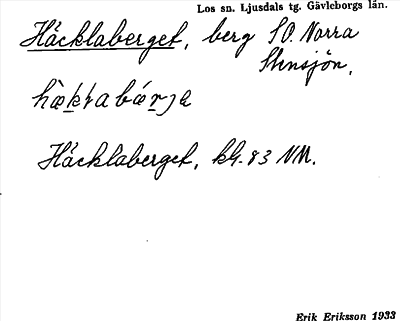 Los sn. Ljusdals tg. Gävleborgs län.
Häcklaberget, berg S.O. Norra
Stensjön.
Häcklaberget, kbl. 83 NM.
Erik Eriksson 1933